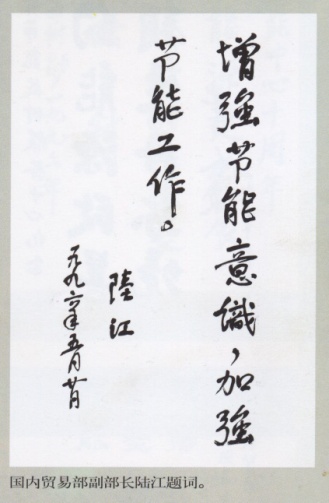 增强节能意識，加強
节能工作。
陸江
一九九六年五月廿日
国内贸易部副部长陆江题词。